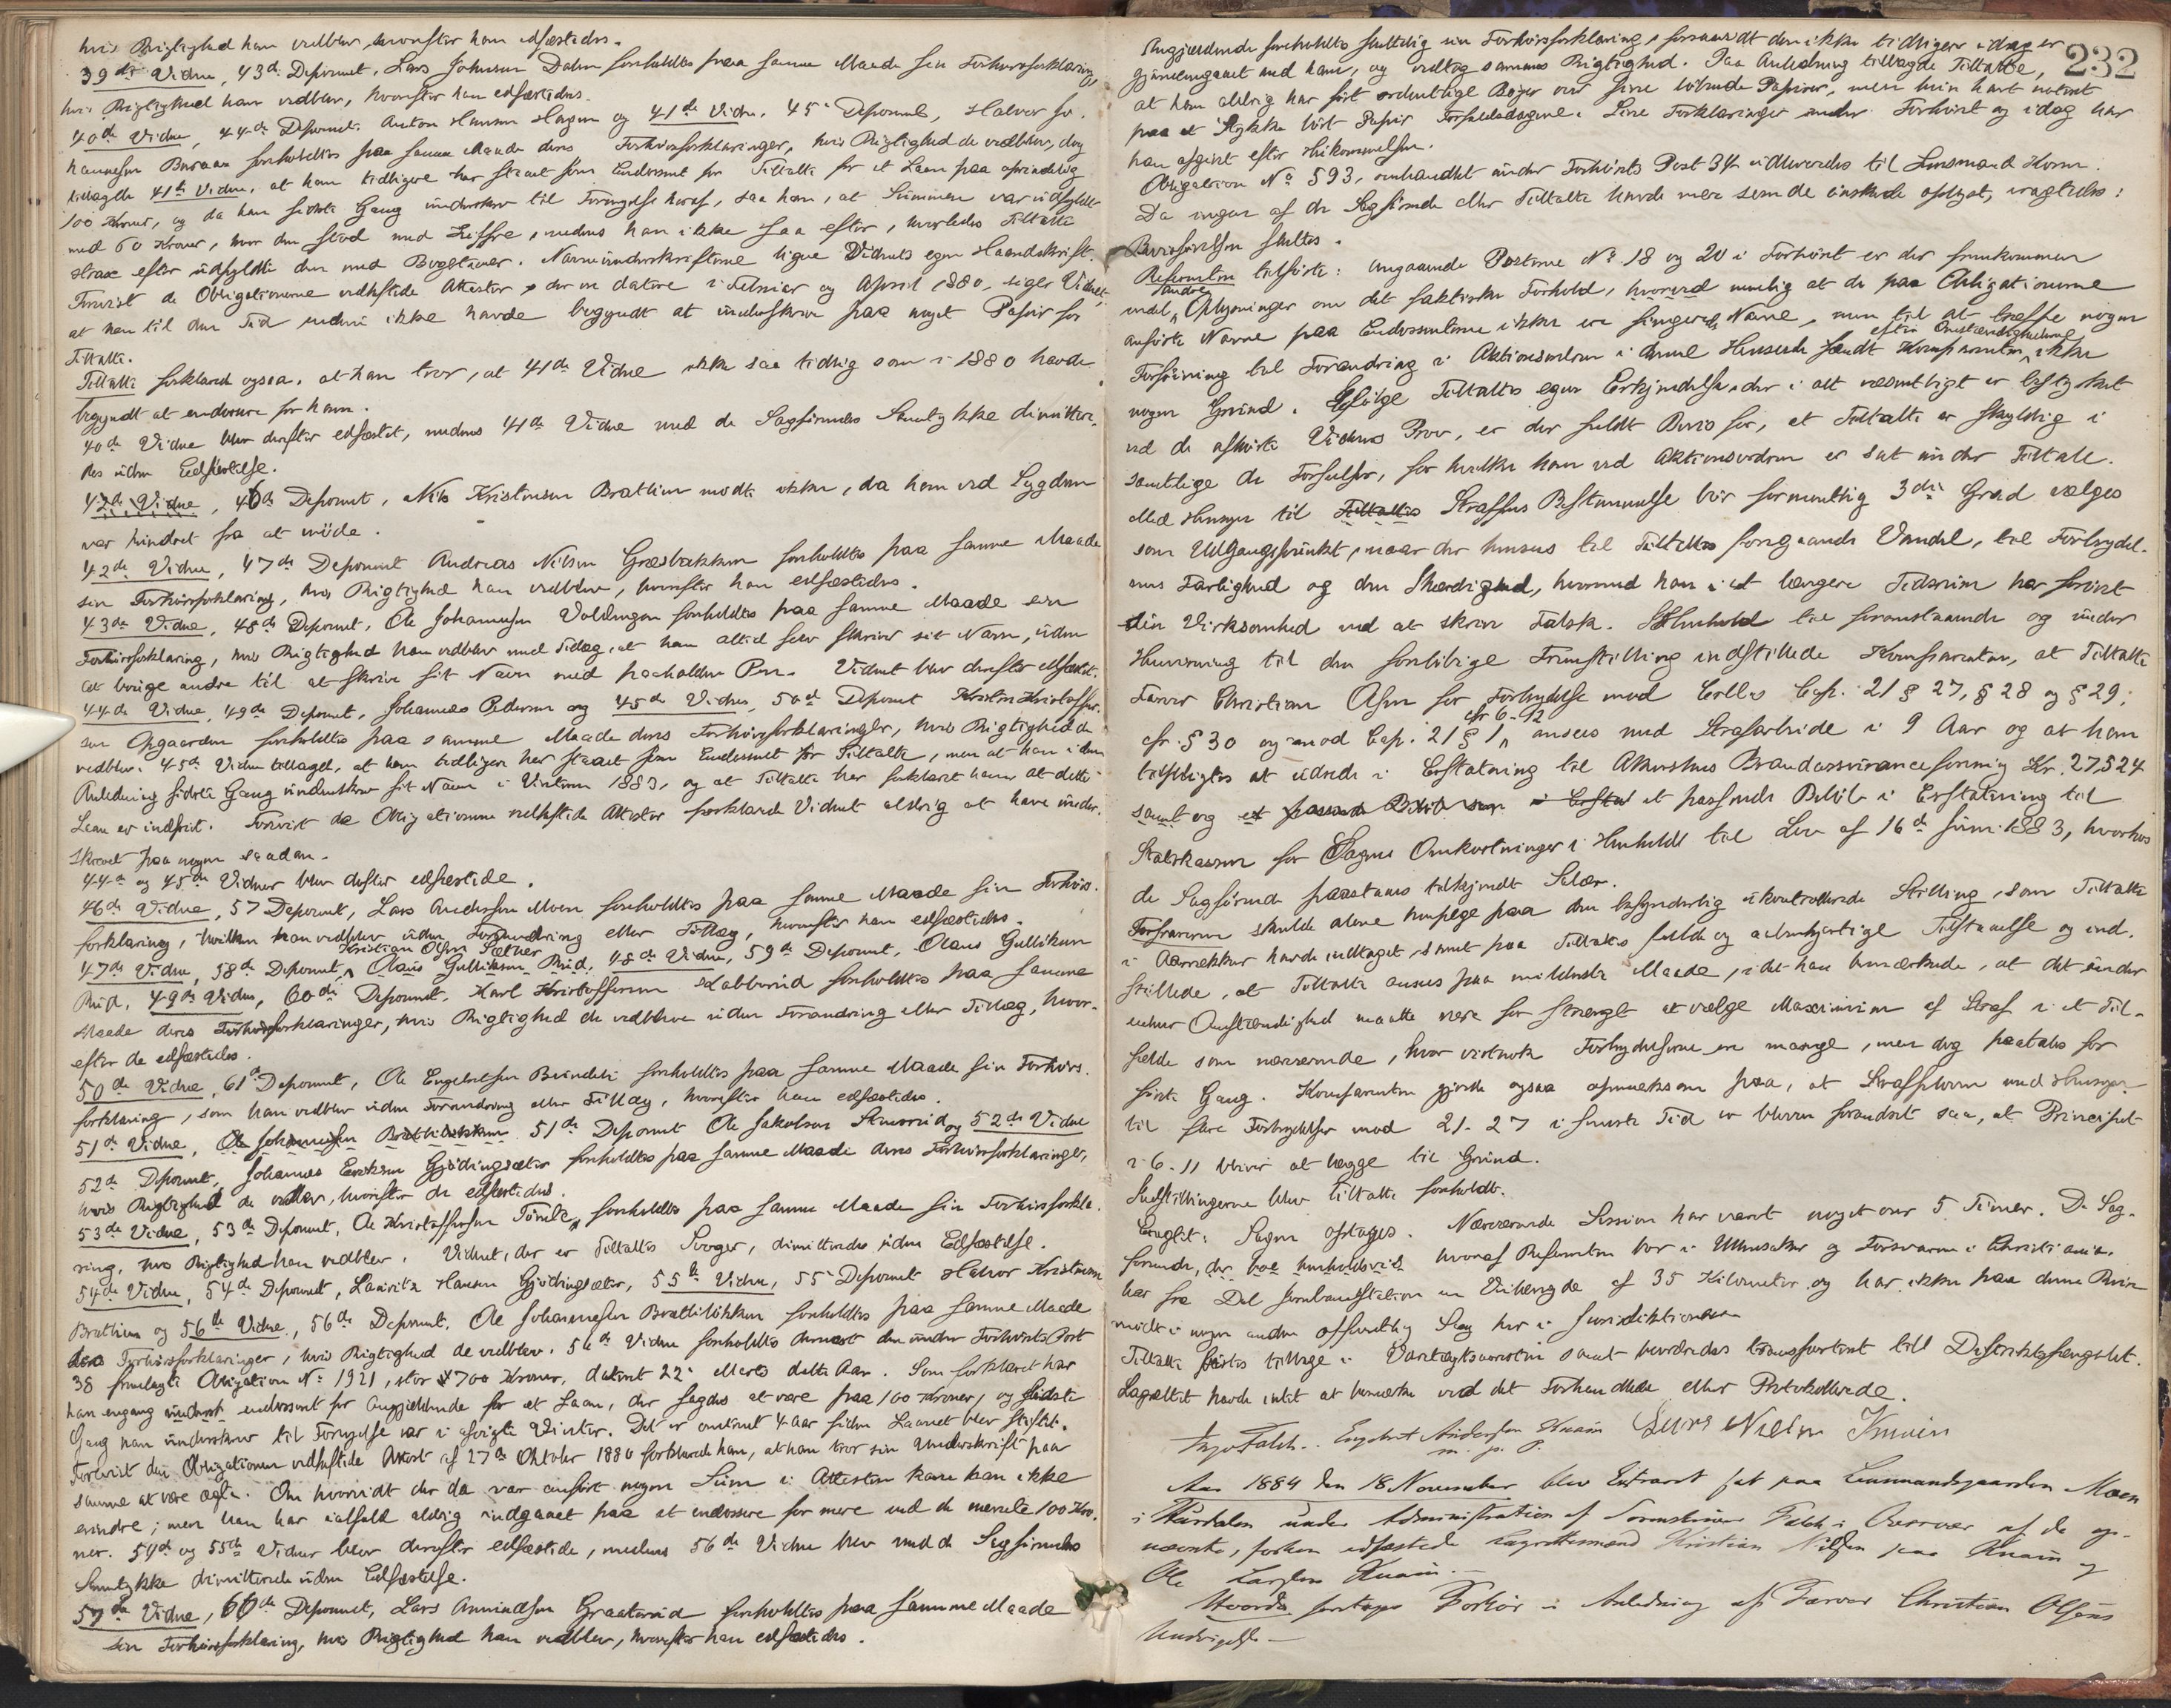 hvis Rigtighed han vedblev, hvorefter han edfæstedes.
39de Vidne, 43de Deponent, Lars Johnsen Dalen foreholdtes paa samme Maade sin Forhørsforklaring,
hvis Rigtighed han vedblev, hvorefter han edfæstedes.
40de Vidne, 44de Deponent, Anton Hansen Hagen og 41de Vidne, 45de Deponent, Halvor Jo-
hannesen Buraas foreholdtes paa samme Maade deres Forhørsforklaringer, hvis Rigtighed de vedblev, dog
tillagde 41de Vidne, at han tidligere har staaet som Endossent for Tiltalte for et Laan paa oprindelig
100 Kroner, og da han sidste Gang underskrev til Fornyelse heraf, saa han, at Summen var udfyldt
med 60 Kroner, hvor den stod med Ziffre, medens han ikke saa efter, hvorledes Tiltalte
strax efter udfyldte den med Bogstaver. Navneunderskrifterne ligne Vidnets egen Haandskrift.
Forevist de Obligationerne vedheftede Attester, der er daterede i Februar og April 1880, siger Vidnet,
at han til den Tid endnu ikke havde begyndt at underskrive paa noget Papir for
Tiltalte.
Tiltalte forklarede ogsaa, at han tror, at 41de Vidne ikke saa tidlig som i 1880 havde
begyndt at endossere for ham.
40de Vidne blev derefter edfæstet, medens 41de Vidne med de Sagførendes Samtykke dimittere-
des uden Edfæstelse.
42de Vidne, 46de Deponent, Nils Kristensen Brathen mødte ikke, da han ved Sygdom
var hindret fra at møde.
42de Vidne, 47de Deponent Andreas Nilsen Græsbakken foreholdtes paa samme Maade
sin Forhørsforklaring, hvis Rigtighed han vedblev, hvorefter han edfæstedes.
43de Vidne, 48de Deponent, Ole Johannesen Voldengen foreholdtes paa samme Maade sin
Forhørsforklaring, hvis Rigtighed han vedblev med Tillæg, at han altid selv skriver sit Navn, uden
at bruge andre til at skrive sit Navn med paaholden Pen. Vidnet blev derefter edfæstet.
44de Vidne, 49de Deponent, Johannes Pedersen og 45de Vidne, 50de Deponent Kristen Kristoffer-
sen Opgaarden foreholdtes paa samme Maade deres Forhørsforklaringer, hvis Rigtighed de
vedblev. 45de Vidne tillagde, at han tidligere har staaet som Endossent for Tiltalte, men at han i den
Anledning sidste Gang underskrev sit Navn i Vinteren 1883, og at Tiltalte har forklaret ham at dette
Laan er indfriet. Forevist de Obligationerne vedheftede Attester forklarede Vidnet aldrig at have under-
skrevet paa nogen saadan.
44de og 45de Vidner blev derefter edfæstede.
46de Vidne, 57 Deponent, Lars Andersen Moen foreholdtes paa samme Maade sin Forhørs-
forklaring, hvilken han vedblev uden Forandring eller Tillæg, hvorefter han edfæstedes.
47de Vidne, 58de Deponent, Kristian Olsen Sæther Olaus Gulliksen Rud, 48de Vidne, 59de Deponent, Olaus Gulliksen
Rud, 49de Vidne, 60de Deponent, Karl Kristoffersen Kabberud foreholdtes paa samme
Maade deres Forhørsforklaringer, hvis Rigtighed de vedblev uden Forandring eller Tillæg, hvor-
efter de edfæstedes.
50de Vidne, 61de Deponent, Ole Engebretsen Bundeli foreholdtes paa samme Maade sin Forhørs-
forklaring, som han vedblev uden Forandring eller Tillæg, hvorefter han edfæstedes.
51de Vidne, Ole Johannesen Brattlibakken 51de Deponent Ole Jakobsen Skuserud og 52de Vidne
52de Deponent, Johannes Eriksen Gjødingsæter foreholdtes paa samme Maade deres Forhørsforklaringer,
hvis Rigtighed de vedblev, hvorefter de edfæstedes.
53de Vidne, 53de Deponent, Ole Kristoffersen Tømte, foreholdtes paa samme Maade sin Forhørsforkla-
ring, hvis Rigtighed han vedblev. Vidnet, der er Tiltaltes Svoger, dimitteredes uden Edfæstelse.
54de Vidne, 54de Deponent, Lauritz Hansen Gjødingsæter, 55de Vidne, 55de Deponent Halvor Kristensen
Brathen og 56de Vidne, 56de Deponent, Ole Johannesen Brattlibakken foreholdtes paa samme Maade
deres Forhørsforklaringer, hvis Rigtighed de vedblev. 56de Vidne foreholdtes dernæst den under Forhørets Post
38 fremlagte Obligation No 1921, stor 700 Kroner, dateret 22de Marts dette Aar. Som forklaret har
han engang underst endosseret for Angjeldende for et Laan, der sagdes at være paa 100 Kroner, og sidste
Gang han underskrev til Fornyelse var i afvigte Vinter. Det er omtrent 4 Aar siden Laanet blev stiftet.
Forevist den Obligationen vedheftede Attest af 27de Oktober 1880 forklarede han, at han tror sin Underskrift paa
samme at være ægte. Om hvorvidt der da var anført nogen Sum i Attesten kan han ikke
erindre; men han har ialfald aldrig indgaaet paa at endossere for mere end de nævnte 100 Kro-
ner. 54de og 55de Vidner blev derefter edfæstede, medens 56de Vidne blev med de Sagførendes
Samtykke dimitterede uden Edfæstelse.
57de Vidne, 66de Deponent, Lars Amundsen Graaterud foreholdtes paa samme Maade
sin Forhørsforklaring, hvis Rigtighed han vedblev, hvorefter han edfæstedes.
232
Angjældende foreholdtes sluttelig sin Forhørsforklaring, forsaavidt den ikke tidligere idag er
gjennemgaaet med ham, og vedtog sammes Rigtighed. Paa Anledning tillagde Tiltalte,
at han aldrig har ført ordentlige Bøger over sine løbende Papirer, men kun havt noteret
paa et Stykke løst Papir Forfaldsdagene. Sine Forklaringer under Forhøret og idag har
han afgivet efter Hukommelsen.
Obligation No 593, omhandlet under Forhørets Post 34 udleveredes til Lensmand Horn.
Da ingen af de Sagførende eller Tiltalte havde mere som de ønskede oplyst, vragtedes:
Bevisførelsen sluttes.
Referenten tilførte: Angaaende Posterne No 18 og 20 i Forhøret er der fremkommen
endel andre Oplysninger om det faktiske Forhold, hvorved nemlig at de paa Obligationerne
anførte Navne paa Endossenterne ikke ere fingerede Navne, men til at træffe nogen
Forføining til Forandring i Aktionsordren i denne Henseende fandt Komparenten efter Omstændighederne ikke
nogen Grund. Ifølge Tiltaltes egen Erkjendelse, der i alt væsentligt er bestyrket
ved de afhørte Vidners Prov, er der fuldt Bevis for, at Tiltalte er skyldig i
samtlige de Forfalskninger, for hvilke han ved Aktionsordren er sat under Tiltale.
Med Hensyn til Tiltaltes Straffens Bestemmelse bør formentlig 3die Grad vælges
som Udgangspunkt, naar der henses til Tiltaltes foregaaende Vandel, til Forbrydel-
sens Farlighed og den Færdighed, hvormed han i et længere Tidsrum har forøvet
sin Virksomhed ved at skrive Falsk. I Henhold til foranstaaende og under
Henvisning til den foreløbige Fremstilling indstillede Komparenten, at Tiltalte
Farver Christian Olsen for Forbrydelse mod Crl.ls Cap. 21 § 27, § 28 og § 29;
cfr. § 30 og mod Cap. 21 § 1, cfr 6-12 ansees med Strafarbeide i 9 Aar og at han
tilpligtes at udrede i Erstatning til Akershus Brandassuranceforening Kr. 27,524
samt og et passende Beløb som i Erstat et passende Beløb i Erstatning til
Statskassen for Sagens Omkostninger i Henhold til Lov af 16de Juni 1883, hvorhos
de Sagførende paastaaes tilkjendt Salær.
Forsvareren skulde alene henpege paa den besynderlig ukontrollerede Stilling, som Tiltalte
i Aarrækker havde indtaget, samt paa Tiltaltes fulde og aabenhjertige Tilstaaelse og ind-
stillede, at Tiltalte ansees paa mildeste Maade, idet han bemærkede, at det under
enhver Omstændighed maatte være for strengt at vælge Maximum af Straf i et Til-
fælde som nærværende, hvor vistnok Forbrydelserne ere mange, men dog paatales for
første Gang. Komparenten gjorde ogsaa opmærksom paa, at Straffeloven med Hensyn
til flere Forbrydelser mod 21-27 i seneste Tid er bleven forandret saa, at Princippet
i 6-11 bliver at lægge til Grund.
Indstillingerne blev Tiltalte foreholdt.
Eragtet: Sagen optages. Nærværende Session har varet noget over 5 Timer. De Sag-
førende, der boe henholdsvis hvoraf Referenten bor i Ullensaker og Forsvareren i Christiania,
har fra Dal Jernbanestation en Veilængde af 35 Kilometer og har ikke paa denne Reise
mødt i nogen anden offentlig Sag her i Jurisdiktionen.
Tiltalte førtes tilbage i Varetægtsarresten samt beordredes transporteret till Distriktsfængslet.
Lagrettet havde intet at bemærke ved det Forhandlede eller Protokollerede.
Falch. Engebret Andersen Knain Lars Nielsen Knain
m. p. P.
Aar 1884 den 18 November blev Extraret sat paa Lensmandsgaarden Moen
i Hurdalen under Administration af Sorenskriver Falch i Overvær af de op-
nævnte, forhen edfæstede Lagrettesmænd Kristian Nilsen Knain og
Ole Larsen Knain.
Hvorda foretoges Forhør i Anledning af Farver Christian Olsens
Undvigelse